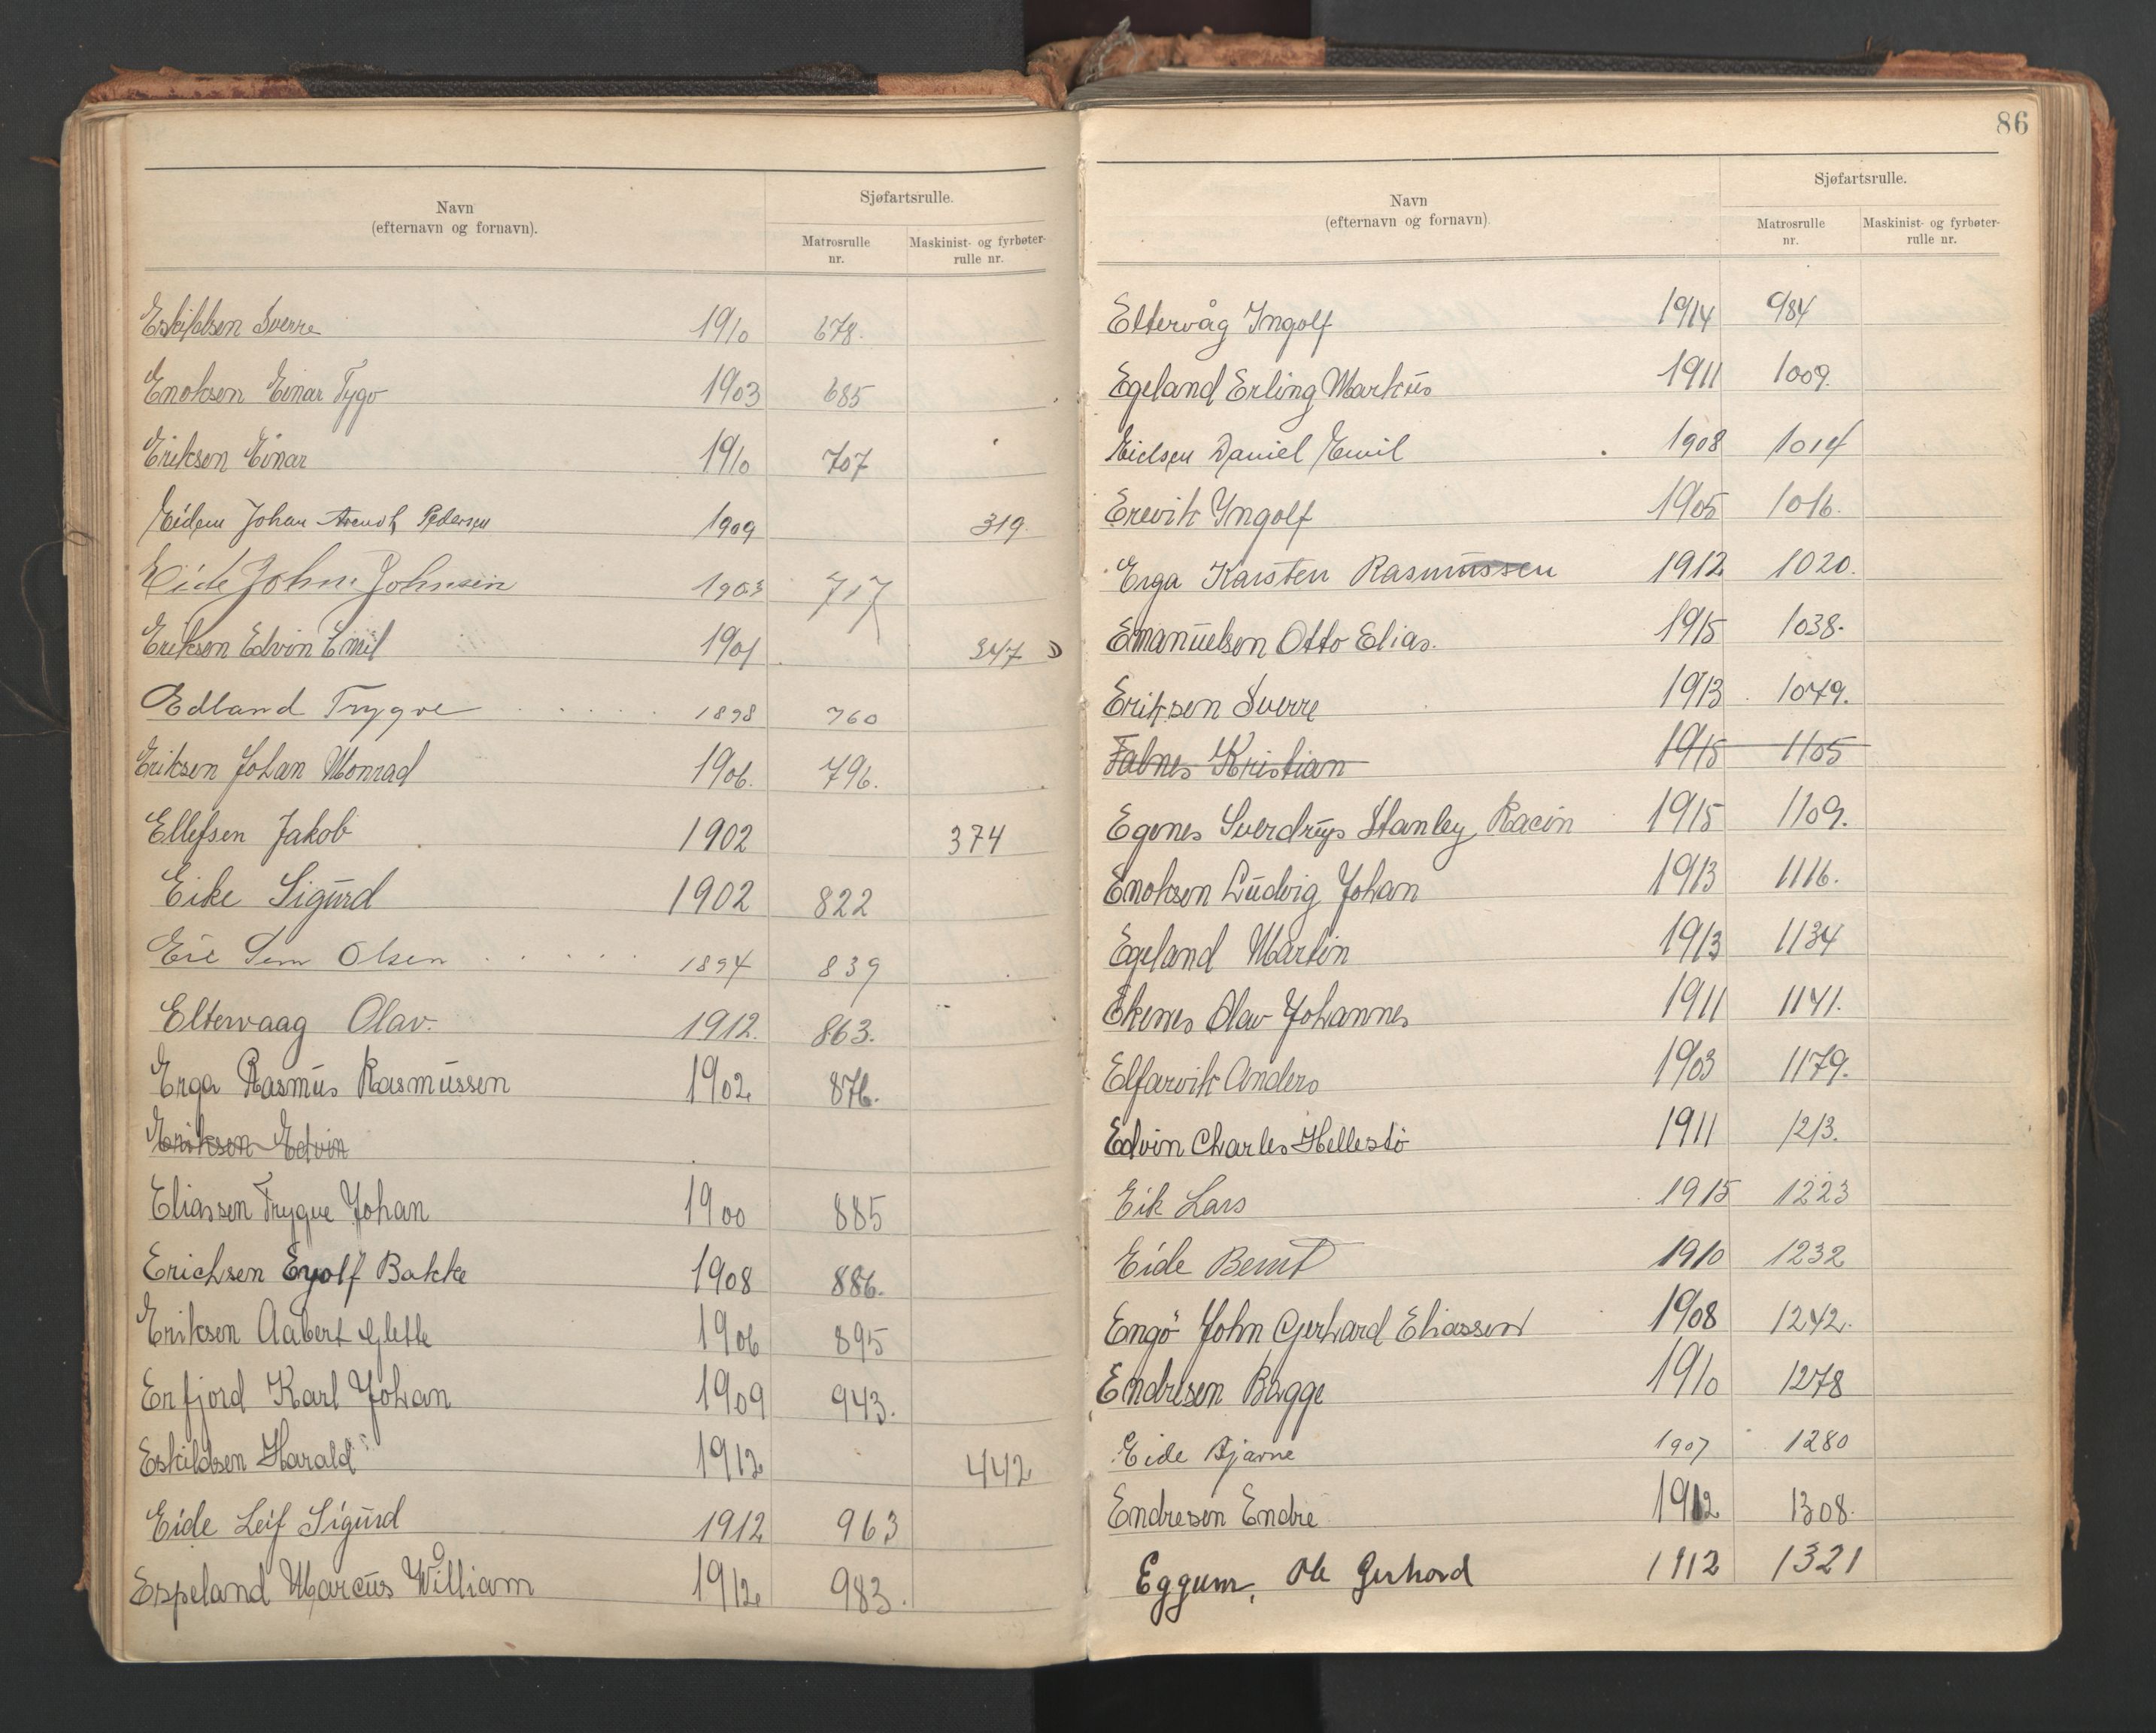 Navn
(efternavn og fornavn).
Sjøfartsrulle.
Matrosrulle nr.
Maskinist- og fyrbøter-rulle nr.
Eskildsen Sverre 1910 678.
Enoksen Einar Tygo 1903 685
Eriksen Einar 1910 707
Eidem Johan Arendt Pedersen 1909 319.
Eide John Johnsen 1903 717
Eriksen Edvin Emil 1901 347
Edland Trygve 1898 760
Eriksen Johan Monrad 1906. 796.
Ellefsen Jakob 1902 374
Eike Sigurd 1902 822
Eie Sem Olsen 1894 839
Eltervaag Olav. 1912. 863.
Erga Rasmus Rasmussen 1902 876.
Eriksen Edvin
Eliassen Trygve Johan 1900 885
Erichsen Eyolf Bakke 1908 886.
Eriksen Aabert Glette 1906 895
Erfjord Karl Johan 1909 943.
Eskildsen Harald 1912 442
Eide Leif Sigurd 1912 963
Espeland Marcus William 1912 983.
86
Navn
(efternavn og fornavn)
Sjøfartsrulle.
Matrosrulle nr.
Maskinist- og fyrbøter-rulle nr.
Eltervåg Ingolf 1914 984
Egeland Erling Markus 1911 1009.
Eielsen Daniel Emil 1908 1014
Erevik Ingolf 1905 1016.
Erga Karsten Rasmussen 1912 1020.
Emanuelsen Otto Elias. 1915 1038.
Eriksen Sverre 1913 1079.
Falnes Kristian 1915 1105
Egenes Sverdrup Stanley Racin 1915 1109.
Enoksen Ludvig Johan 1913 1116.
Egeland Martin 1913 1134
Ekenes Olav Johannes 1911 1141.
Elfarvik Anders 1903 1179.
Edvin Charles Hellestö 1911 1213.
Eik Lars 1915 1223
Eide Bernt 1910 1232
Engö John Gerhard Eliassen 1908 1242.
Endresen Bagge 1910 1278
Eide Bjarne 1907 1280
Endresen Endre 1912 1308.
Eggum, Ole Gerhard 1912 1321